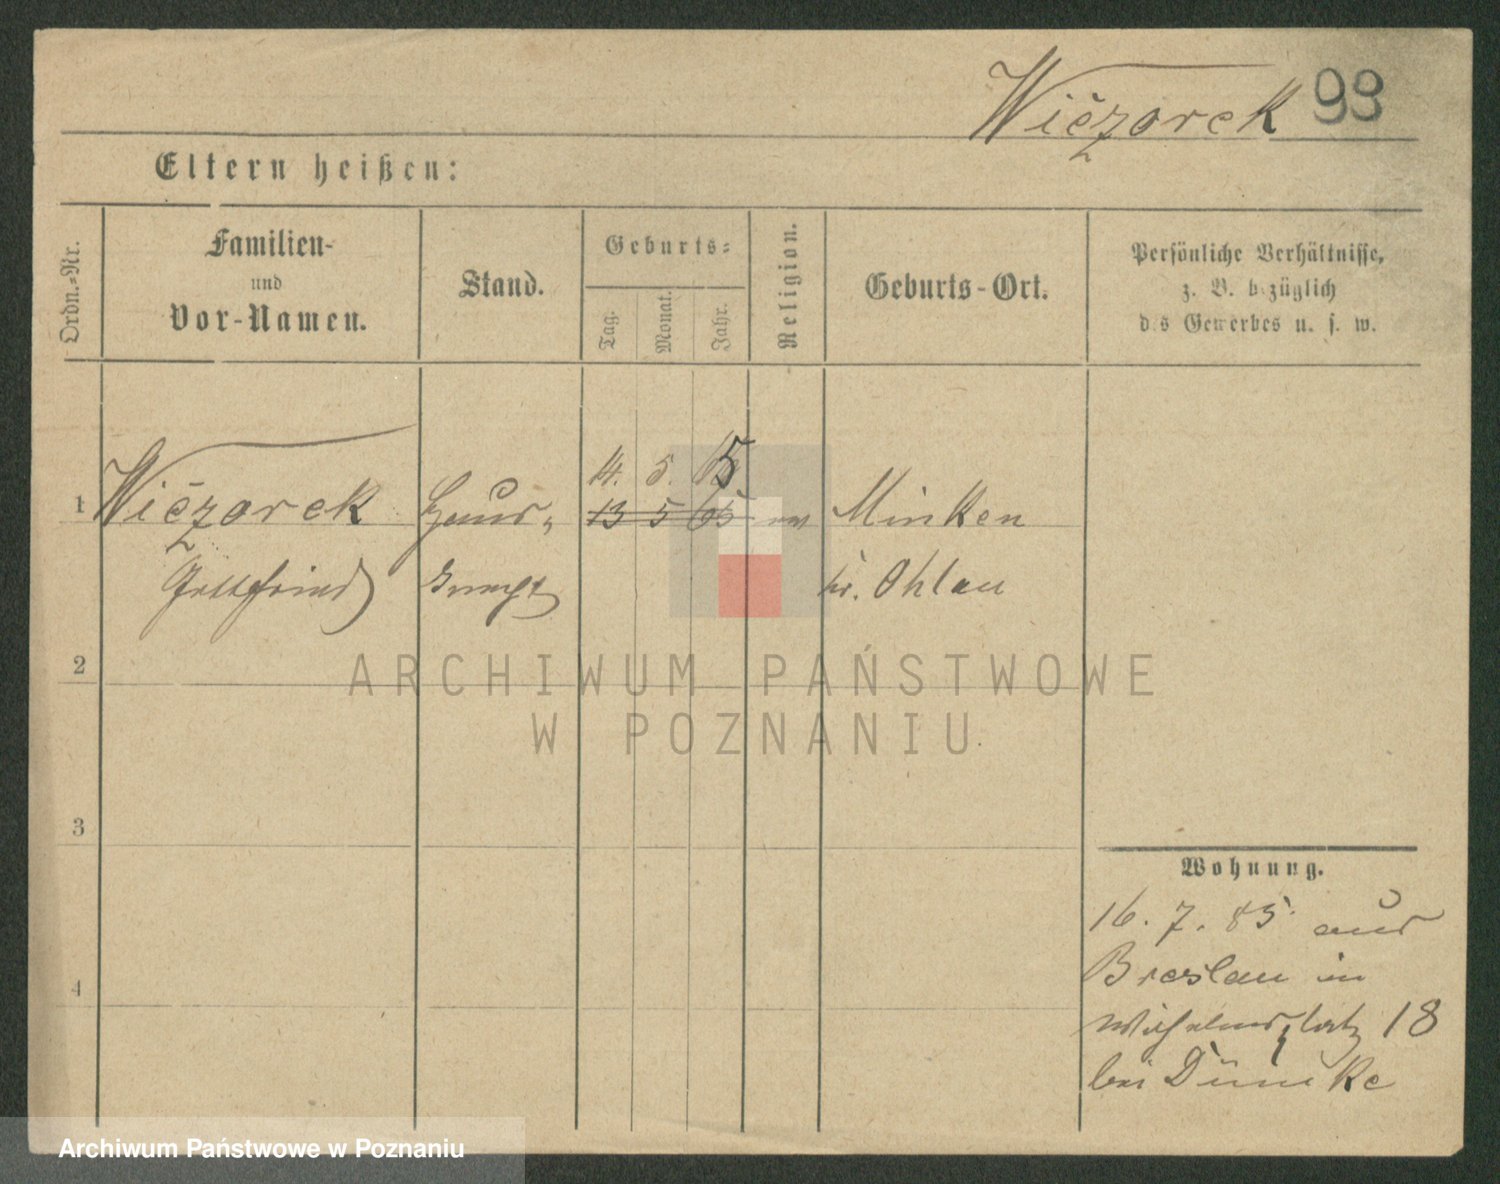 Wičzorek 93
Eltern heißen:
Ordn.-Nr.
Familien-
und
Vor-Namen.
Stand.
Geburts-
Tag.
Monat.
Jahr.
Religion.
Geburts-Ort.
Persönliche Verhältnisse,
z. B. bezüglich
des Gewerbes u. s. w.
14. 5. 65
1 Wičzorek Haus- 13 5 65 ev Minken
Gottfried knecht kr. Ohlau
2
3
4
Wohnung.
16. 7. 85 aus
Breslau in
Wilhelmsplatz 18
bei Dümke
ARCHIWUM PAŃSTWOWE
W POZNANIU
Archiwum Państwowe w Poznaniu